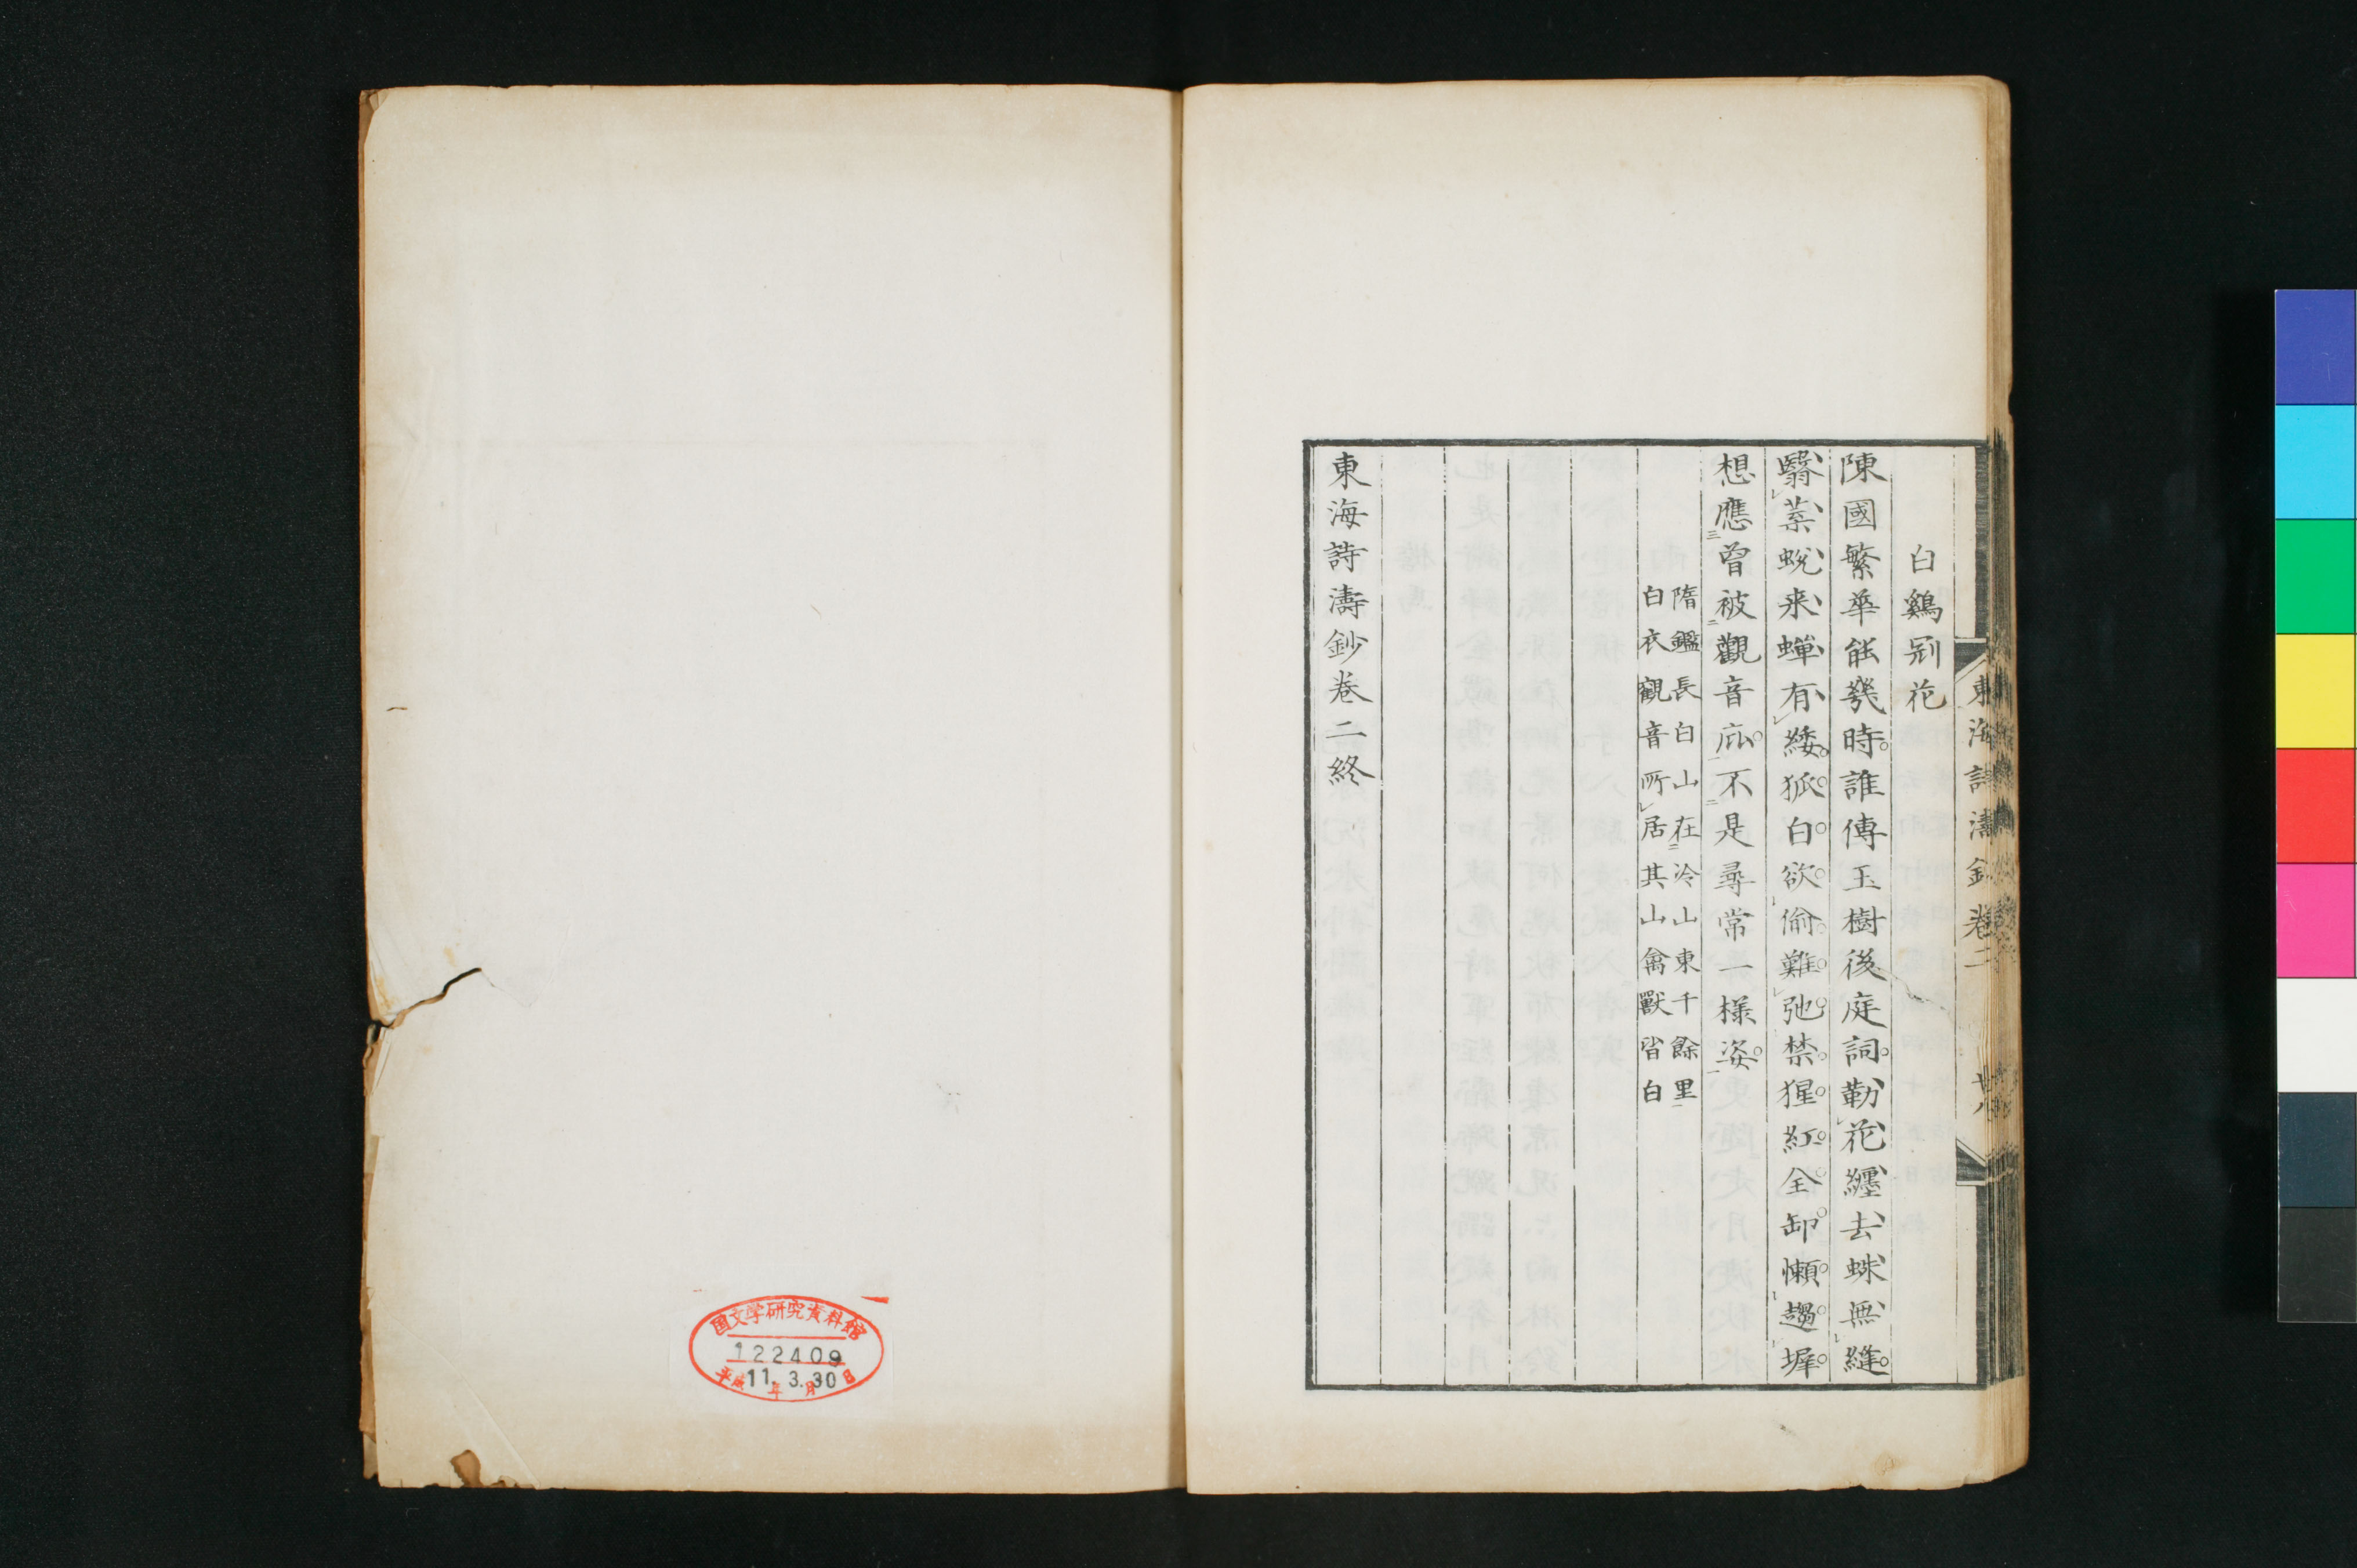 東海詩濤鈔卷二 廿八
白鷄冠花
陳國繁華能幾時誰傳玉樹後庭詞勒花纏去蛛無縫
翳葉蛻来蟬有緌狐白欲偷難弛禁猩紅全卸懶趨墀
想應三曾被二觀音庇一不二是尋常一様姿一
隋鑑長白山在二冷山東千餘里一
白衣觀音所レ居其山禽獸皆白
東海詩濤鈔卷二終
国文学研究資料館
122409
平成11年3.月30日